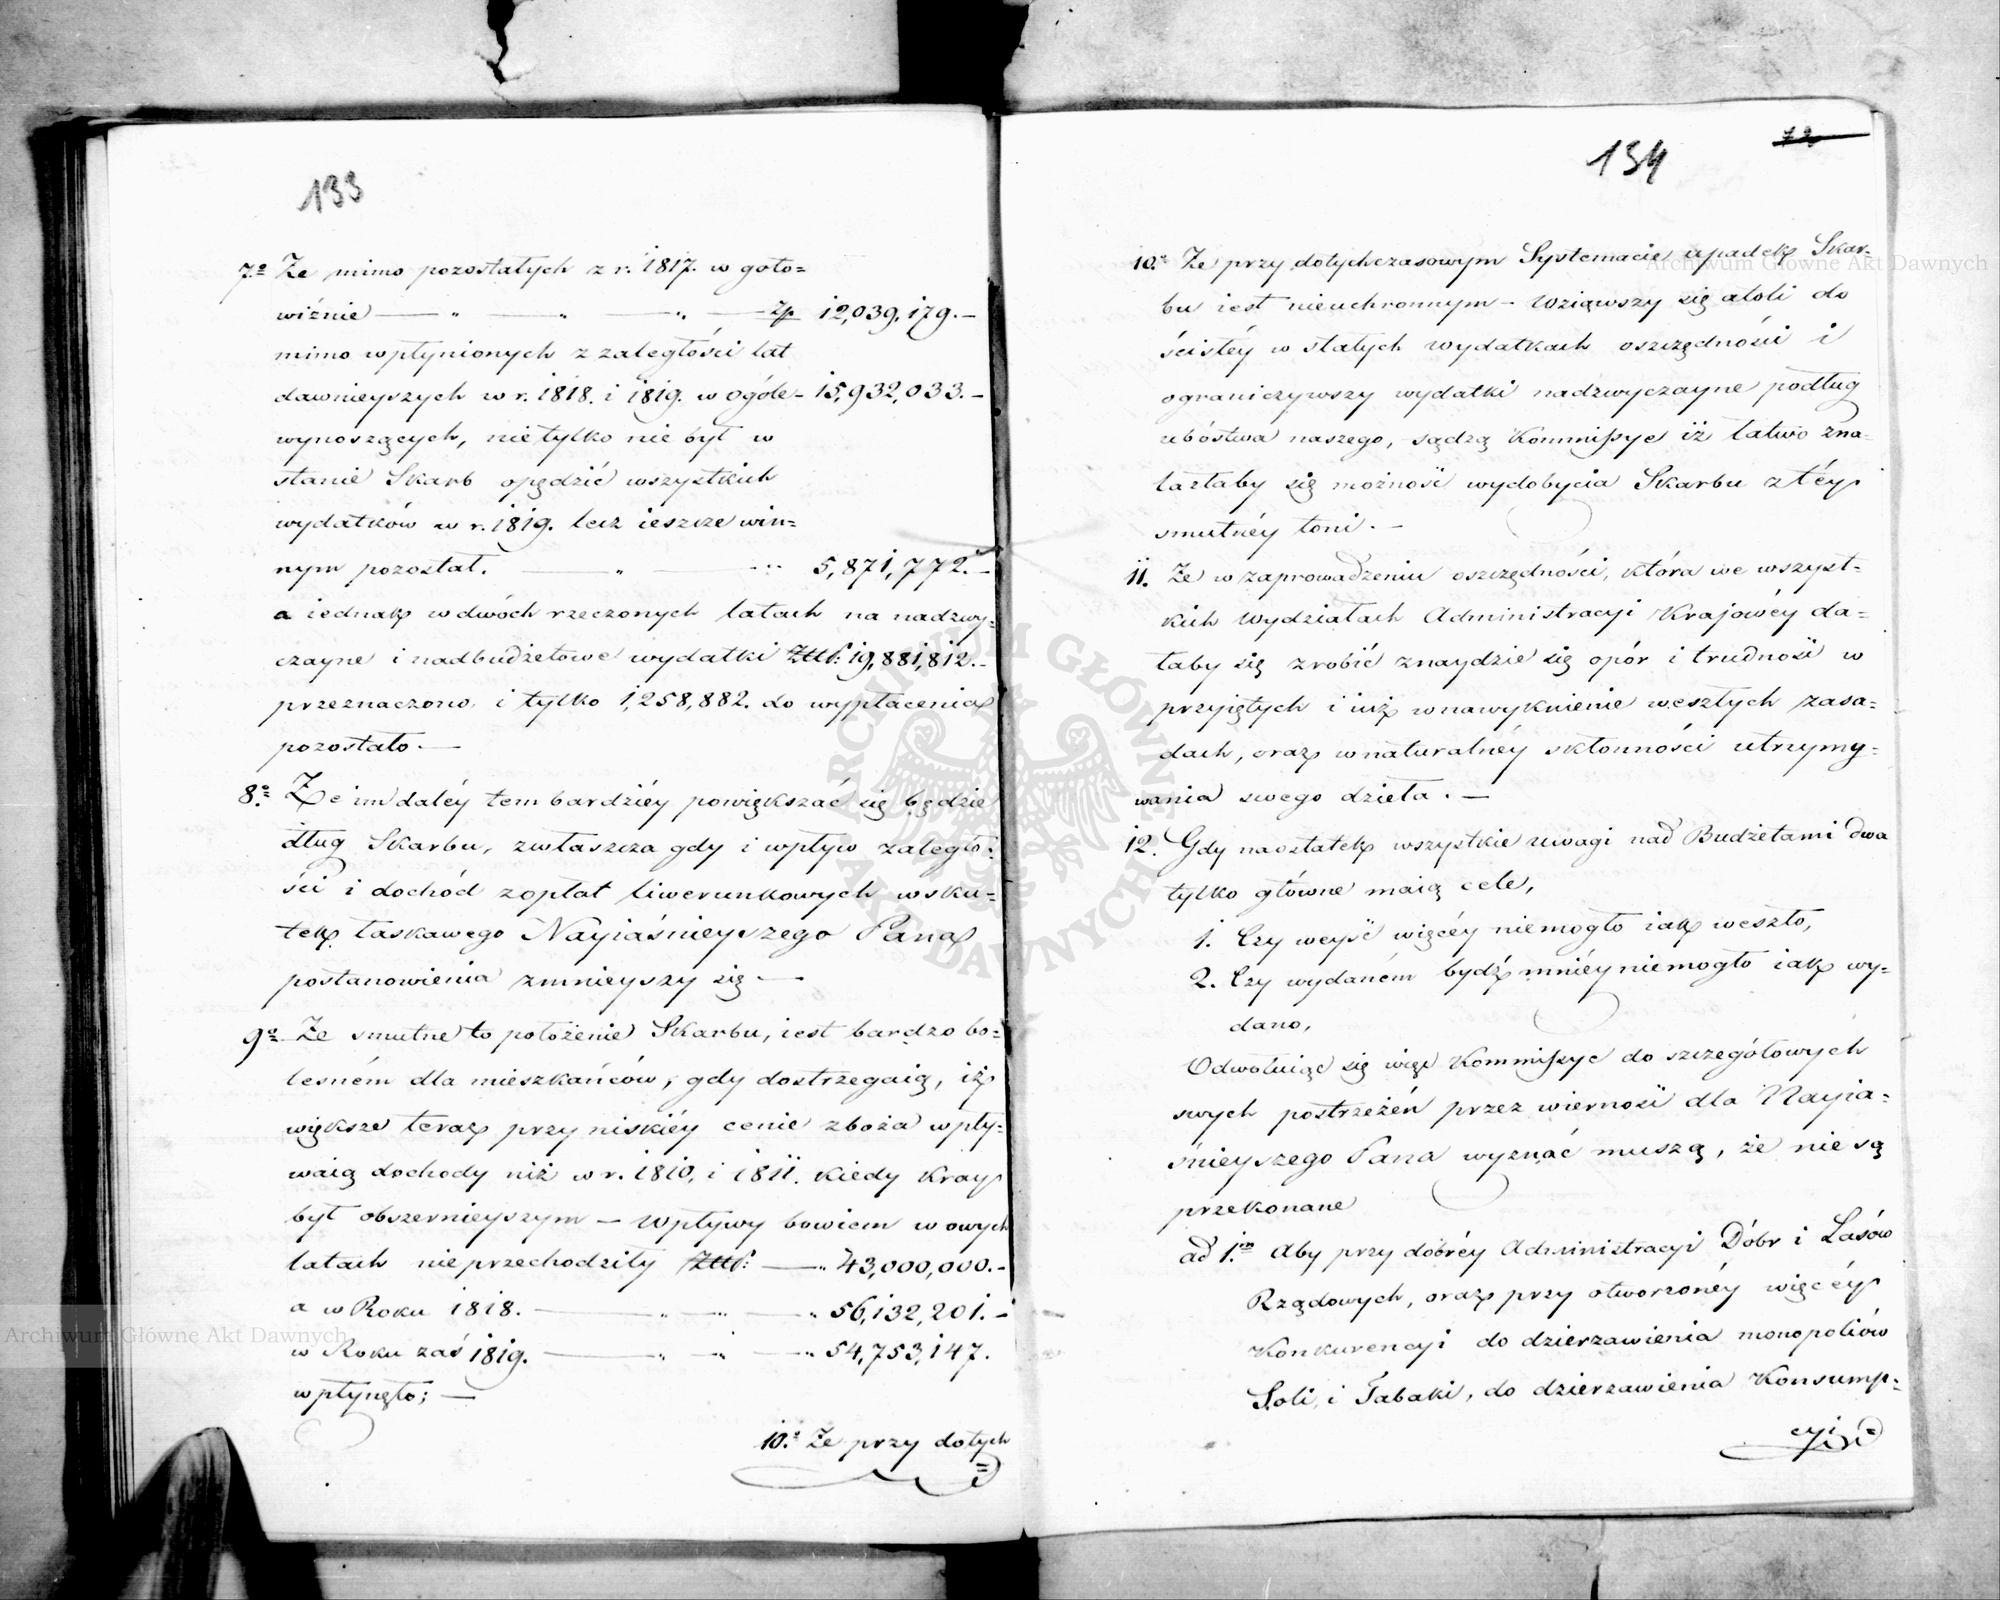 133
7º Że mimo pozostałych z r. 1817. w goto=
wiźnie — „ — „ — „ — Zp 12,039,179.—
mimo wpłynionych z zaległości lat
dawnieyszych w r. 1818. i 1819. w ogóle= 15,932,033.—
wynoszących, nietylko nie był w
stanie Skarb opędzić wszystkich
wydatków w r. 1819. lecz ieszcze win=
nym pozostał. — „ — „ 5,871,772.—
a iednak w dwóch rzeczonych latach na nadzwy-
czayne i nadbudżetowe wydatki Złt: 19,881,812.—
przeznaczono i tylko 1,258,882. do wypłacenia
pozostało.—
8º Że im daléy tem bardziéy powiększać się będzie
dług Skarbu, zwłaszcza gdy i wpływ zaległo=
ści i dochód z opłat liwerunkowych w sku=
tek łaskawego Nayiaśnieyszego Pana
postanowienia zmnieyszy się —
9º Że smutne to położenie Skarbu, iest bardzo bo=
lesném dla mieszkańców, gdy dostrzegaią, iż
większe teraz przy niskiéy cenie zboża wpły=
waią dochody niż w r. 1810, i 1811. kiedy kray
był obszernieyszym — Wpływy bowiem w owych
latach nieprzechodziły Złt: — „ 43,000,000.—
a w Roku 1818. — „ — „ — „ 56,132,201.—
w Roku zaś 1819. — „ — „ — „ 54,753,147.
wpłynęło; —
10.º Że przy dotych
=
72
134
10.º Że przy dotychczasowym Systemacie upadek Skar=
bu iest nieuchronnym — Wziąwszy się atoli do
ścisłéy w stałych wydatkach oszczędności i
ograniczywszy wydatki nadzwyczayne podług
ubóstwa naszego, sądzą Kommissye iż łatwo zna=
lazłaby się możność wydobycia Skarbu z téy
smutnéy toni.—
11. Że w zaprowadzeniu oszczędności, która we wszyst=
kich Wydziałach Administracyi Krajowéy da=
łaby się zrobić znaydzie się opór i trudność w
przyiętych i iuż w nawyknienie weszłych zasa=
dach, oraz w naturalnéy skłonności utrzymy=
wania swego dzieła.—
12. Gdy naostatek wszystkie uwagi nad Budżetami dwa
tylko główne maią cele,
1. Czy weyść więcéy niemogło iak weszło,
2. Czy wydaném bydź mniéy niemogło iak wy=
dano,
Odwołuiąc się więc Kommissye do szczegółowych
swych postrzeżeń przez wierność dla Nayia=
śnieyszego Pana wyznać muszą, że nie są
przekonane
ad 1.m Aby przy dobréy Administracyi Dóbr i Lasów
Rządowych, oraz przy otworzonéy więcéy
Konkurencyi do dzierzawienia monopoliów
Soli, i Tabaki, do dzierzawienia Konsump=
cyi
Archiwum Główne Akt Dawnych
Archiwum Główne Akt Dawnych
ARCHIWUM GŁÓWNE AKT DAWNYCH